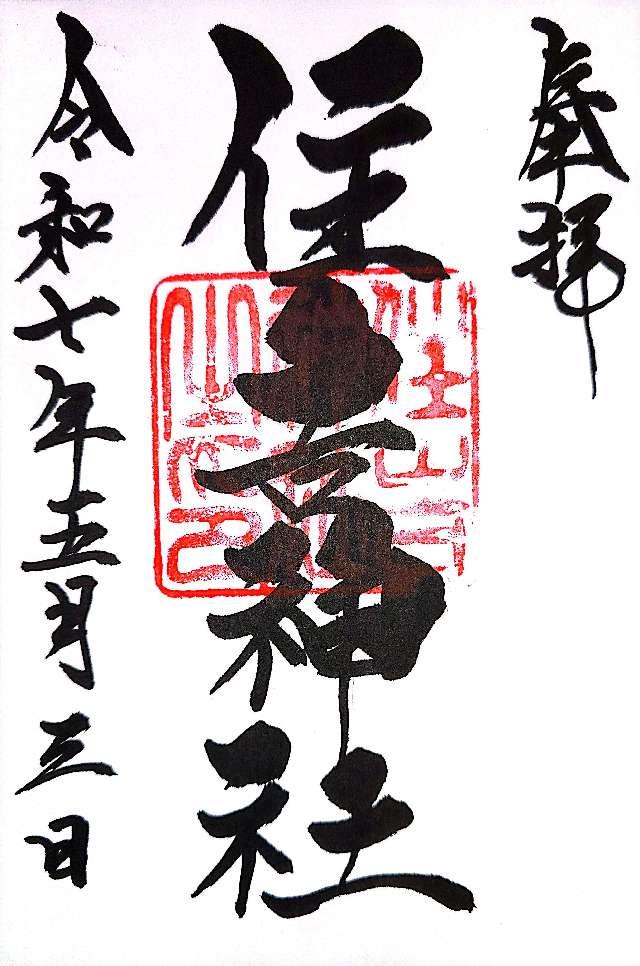 奉拝
住吉神社
令和七年五月三日